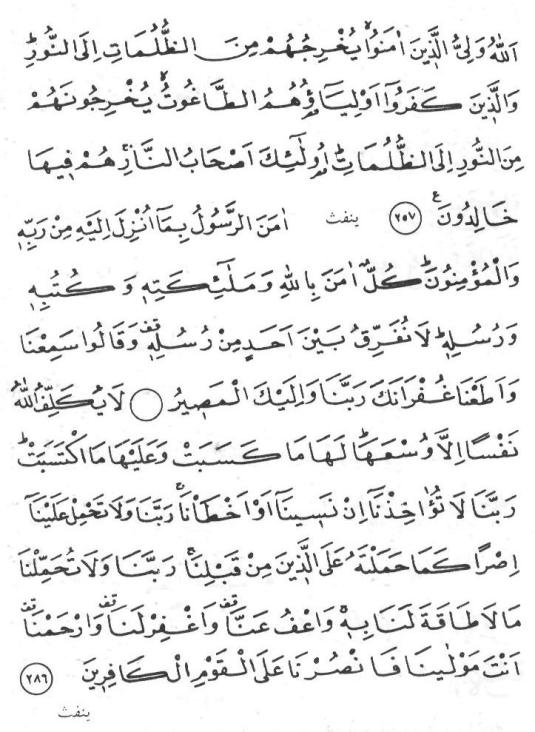 اَللّٰهُ وَلِيُّ الَّذِينَ اٰمَنُواۙ يُخْرِجُهُمْ مِنَ الظُّلُمَاتِ اِلَى النُّورِؕ
وَالَّذِينَ كَفَرُٓوا اَوْلِيَٓاؤُهُمُ الطَّاغُوتُۙ يُخْرِجُونَهُمْ
مِنَ النُّورِ اِلَى الظُّلُمَاتِؕ اُولٰٓئِكَ اَصْحَابُ النَّارِۚ هُمْ فِيهَا
خَالِدُونَࣖ ﴿٢٥٧﴾ ينفث اٰمَنَ الرَّسُولُ بِمَٓا اُنْزِلَ اِلَيْهِ مِنْ رَبِّهٖ
وَالْمُؤْمِنُونَؕ كُلٌّ اٰمَنَ بِاللّٰهِ وَمَلٰٓئِكَتِهٖ وَكُتُبِهٖ
وَرُسُلِهٖؕ لَا نُفَرِّقُ بَيْنَ اَحَدٍ مِنْ رُسُلِهٖࣞ وَقَالُوا سَمِعْنَا
وَاَطَعْنَا غُفْرَانَكَ رَبَّنَا وَاِلَيْكَ الْمَصِيرُ ۝ لَا يُكَلِّفُ اللّٰهُ
نَفْسًا اِلَّا وُسْعَهَاؕ لَهَا مَا كَسَبَتْ وَعَلَيْهَا مَا اكْتَسَبَتْؕ
رَبَّنَا لَا تُؤَاخِذْنَٓا اِنْ نَسِينَٓا اَوْ اَخْطَأْنَاۚ رَبَّنَا وَلَا تَحْمِلْ عَلَيْنَٓا
اِصْرًا كَمَا حَمَلْتَهُ عَلَى الَّذِينَ مِنْ قَبْلِنَاۚ رَبَّنَا وَلَا تُحَمِّلْنَا
مَا لَا طَاقَةَ لَنَا بِهٖۚ وَاعْفُ عَنَّاࣞ وَاغْفِرْ لَنَاࣞ وَارْحَمْنَاࣞ
اَنْتَ مَوْلٰينَا فَانْصُرْنَا عَلَى الْقَوْمِ الْكَافِرِينَ ﴿٢٨٦﴾
ينفث